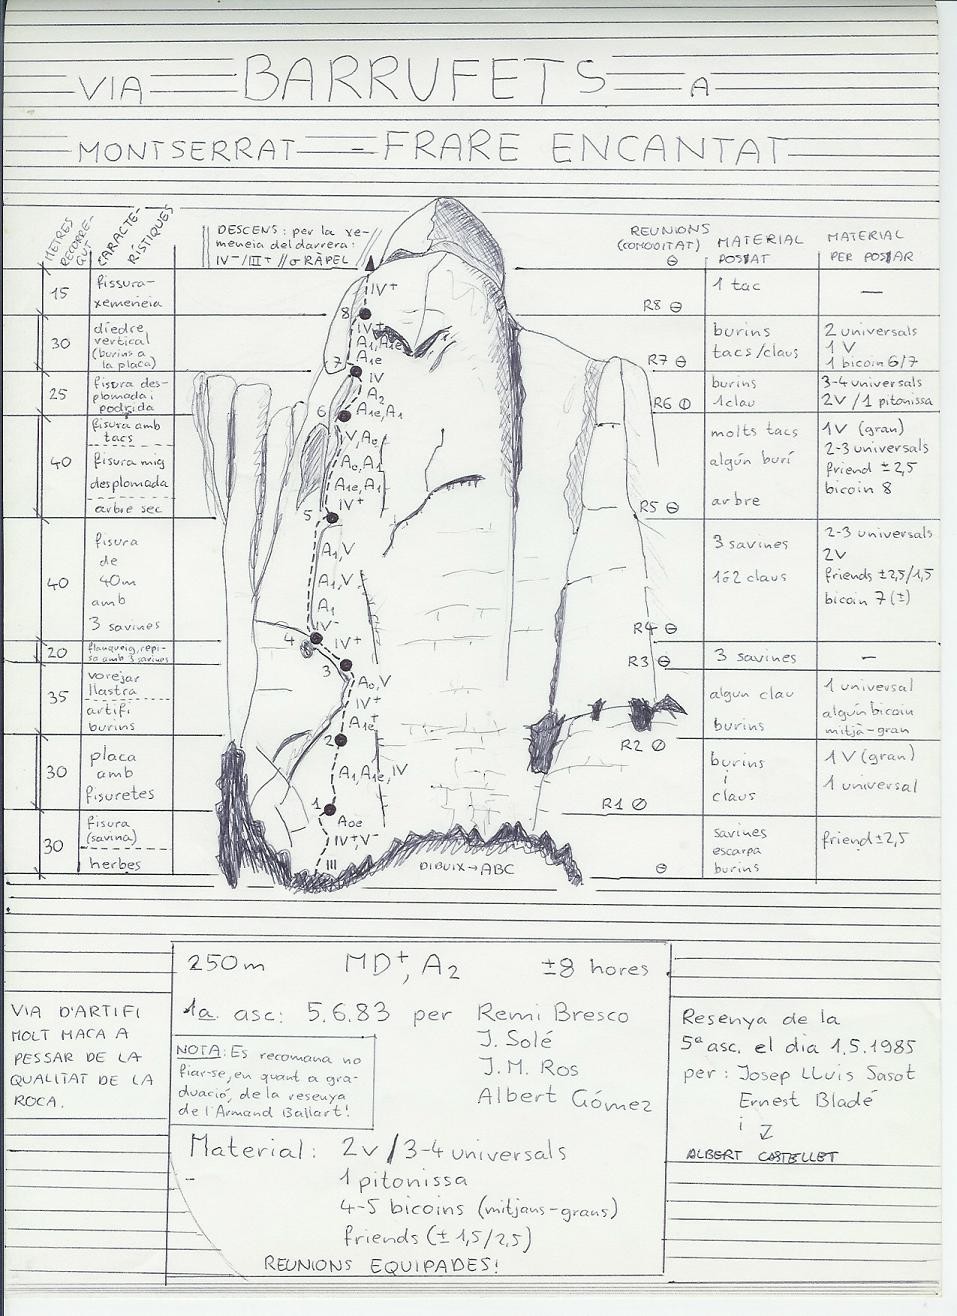 VIA BARRUFETS A
MONTSERRAT - FRARE ENCANTAT
METRES RECORREGUT
CARACTE-
RÍSTIQUES
DESCENS: per la xe-
meneia del darrera:
IV-/III+ // o RÀPEL
REUNIONS
(COMODITAT)
MATERIAL
POSAT
MATERIAL
PER POSAR
15
fissura-
xemeneia
IV+
8
R8
1 tac
—
30
diedre
vertical
(burins a
la placa)
IV+
A1, A1e
A1e
7
R7
burins
tacs/claus
2 universals
1 V
1 bicoin 6/7
25
fisura des-
plomada i
podrida
IV
A2
A1e, A1
6
R6
burins
1 clau
3-4 universals
2V / 1 pitonissa
40
fisura amb
tacs
fisura mig
desplomada
arbre sec
V, A0
A0, A1
A1e, A1
IV+
5
R5
molts tacs
algún burí
arbre
1V (gran)
2-3 universals
friend ± 2,5
bicoin 8
40
fisura
de
40m
amb
3 savines
A1, V
A1, V
A1
IV-
4
R4
3 savines
1ó2 claus
2-3 universals
2V
friends ±2,5/1,5
bicoin 7 (±)
20
flanqueig, repi-
sa amb 3 savines
IV+
3
R3
3 savines
—
35
vorejar
llastra
artifi
burins
A0, V
IV+
A1e+
2
R2
algun clau
burins
1 universal
algún bicoin
mitjà-gran
30
placa
amb
fisuretes
A1, A1e, IV
1
R1
burins
i
claus
1 V (gran)
1 universal
30
fisura
(savina)
herbes
A0e
IV+, V-
III
savines
escarpa
burins
friend ± 2,5
DIBUIX → ABC
250m MD+, A2 ±8 hores
1a. asc: 5.6.83 per Remi Bresco
J. Solé
J.M. Ros
Albert Gómez
NOTA: Es recomana no
fiar-se, en quant a gra-
duació, de la resenya
de l'Armand Ballart!
Material: 2v / 3-4 universals
1 pitonissa
4-5 bicoins (mitjans-grans)
friends (± 1,5/2,5)
REUNIONS EQUIPADES!
VIA D'ARTIFI
MOLT MACA A
PESSAR DE LA
QUALITAT DE LA
ROCA.
Resenya de la
5ª asc. el dia 1.5.1985
per: Josep Lluis Sasot
Ernest Bladé
i
ALBERT CASTELLET